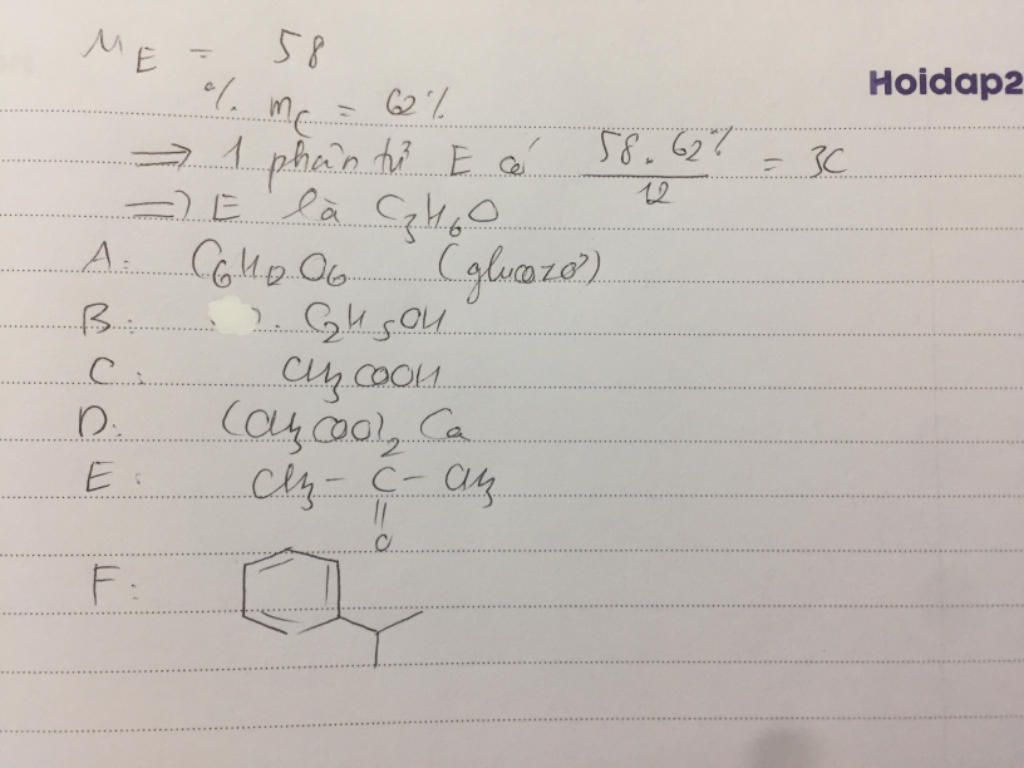 M_E = 58
Hoidap2
% m_C = 62%
=> 1 phân tử E có 58.62% / 12 = 3C
=> E là C3H6O
A: C6H12O6 (glucozơ)
B: C2H5OH
C: CH3COOH
D: (CH3COO)2Ca
E: CH3-C-CH3
||
O
F: